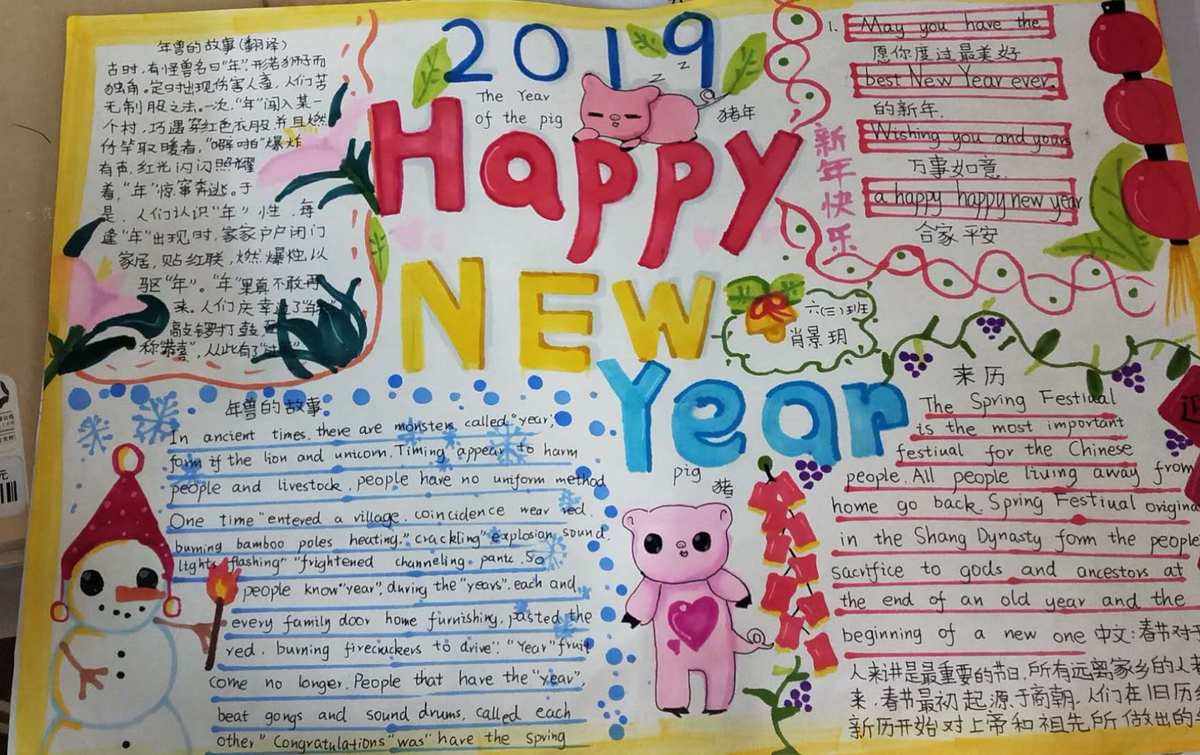 年兽的故事(翻译)
古时,有怪兽名曰"年",形若狮子而
独角。定时出现伤害人畜,人们苦
无制服之法。一次,"年"闯入某一
个村,巧遇穿红色衣服并且燃
竹竿取暖者,"噼啪"爆炸
有声,红光闪闪照耀
着,"年"惊窜奔逃。于
是,人们认识"年"性,每
逢"年"出现时,家家户户闭门
家居,贴红联,燃爆竹,以
驱"年"。"年"果真不敢再
来。人们庆幸过了"年"
敲锣打鼓
称"恭喜",从此有了
2019
The Year
of the pig
z z z
猪年
Happy
NEW
Year
新年快乐
1. May you have the
愿你度过最美好
best New Year ever.
的新年.
Wishing you and yours
万事如意,
a happy happy new year
合家平安
六(三)班
肖景玥
年兽的故事
In ancient times, there are monsters called "year",
form if the lion and unicorn. Timing appear to harm
people and livestock, people have no uniform method
One time "entered a village, coincidence wear red,
burning bamboo poles heating," crackling" explosion sound,
lights flashing" "frightened channeling panic. So
people know "year", during the "years", each and
every family door home furnishing, pasted the
red, burning firecrackers to drive". "Year" fruit
come no longer. People that have the "year",
beat gongs and sound drums, called each
other" Congratulations" was" have the spring
pig
猪
来历
The Spring Festival
is the most important
festival for the Chinese
people. All people living away from
home go back. Spring Festival origina
in the Shang Dynasty form the people
sacrifice to gods and ancestors at
the end of an old year and the
beginning of a new one 中文:春节对
人来讲是最重要的节日,所有远离家乡的人
来,春节最初起源于商朝,人们在旧历
新历开始对上帝和祖先所做出的